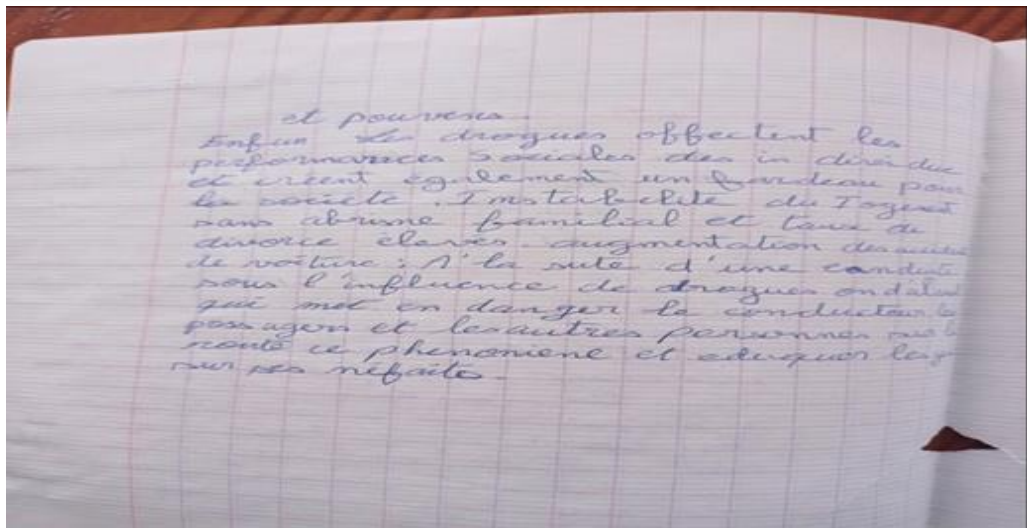 et pouvenes.
Enfin les drogues affectent les
performances sociales des in dividu
et créent egalement un fardeau pour
la societe. Instabelité du
sans abrisme familial et taux de
divorce elevés. augmentation des
de voiture : A' la suite d'une conduite
sous l'influence de drogues
qui met en danger le conducteur, les
passagers et les autres personnes sur la
route ce phenomene et eduquer les
sur ses nefaits.